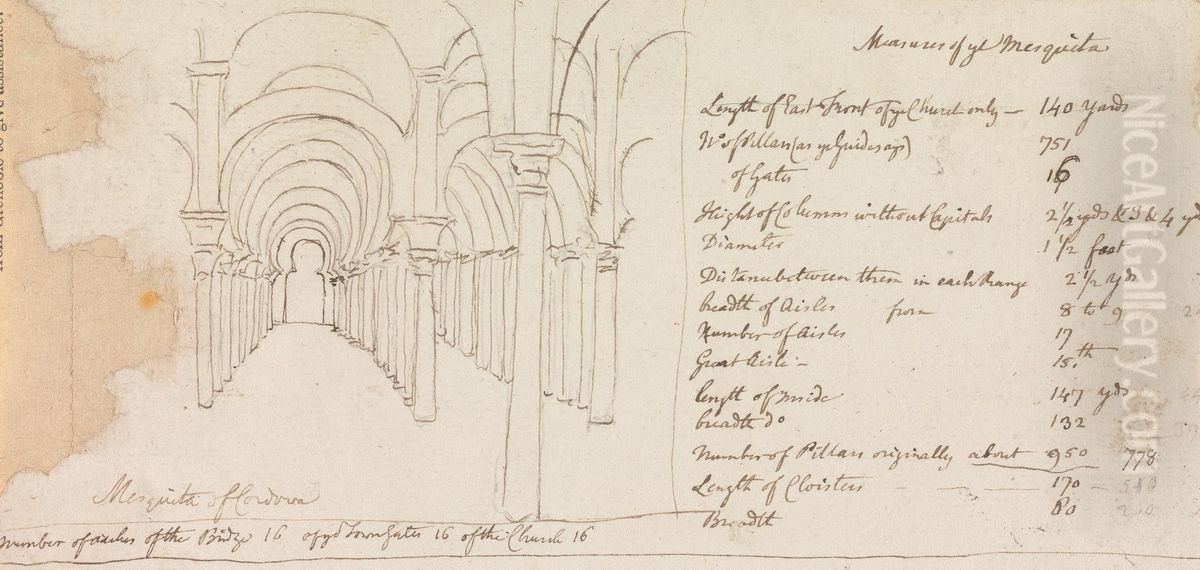 Measures of ye Mesquita
Length of East Front of ye Church only — 140 yards
No of Pillars (as ye Guide says) 751
of Gates 16
Height of Columns without Capitals 2 1/2 yds & 3 & 4 yds
Diameter 1 1/2 foot
Distance between them in each Range 2 1/2 yds
breadth of Aisles from 8 to 9
Number of Aisles 17
Great Aisle — 15th
length of Inside 147 yds
breadth do 132
Number of Pillars originally about 950 778
Length of Cloisters — 170
Breadth 80
Mesquita of Cordova
Number of arches of the Bridge 16 of ye Town Gates 16 of the Church 16
to give assistance.
NiceArtGallery.com